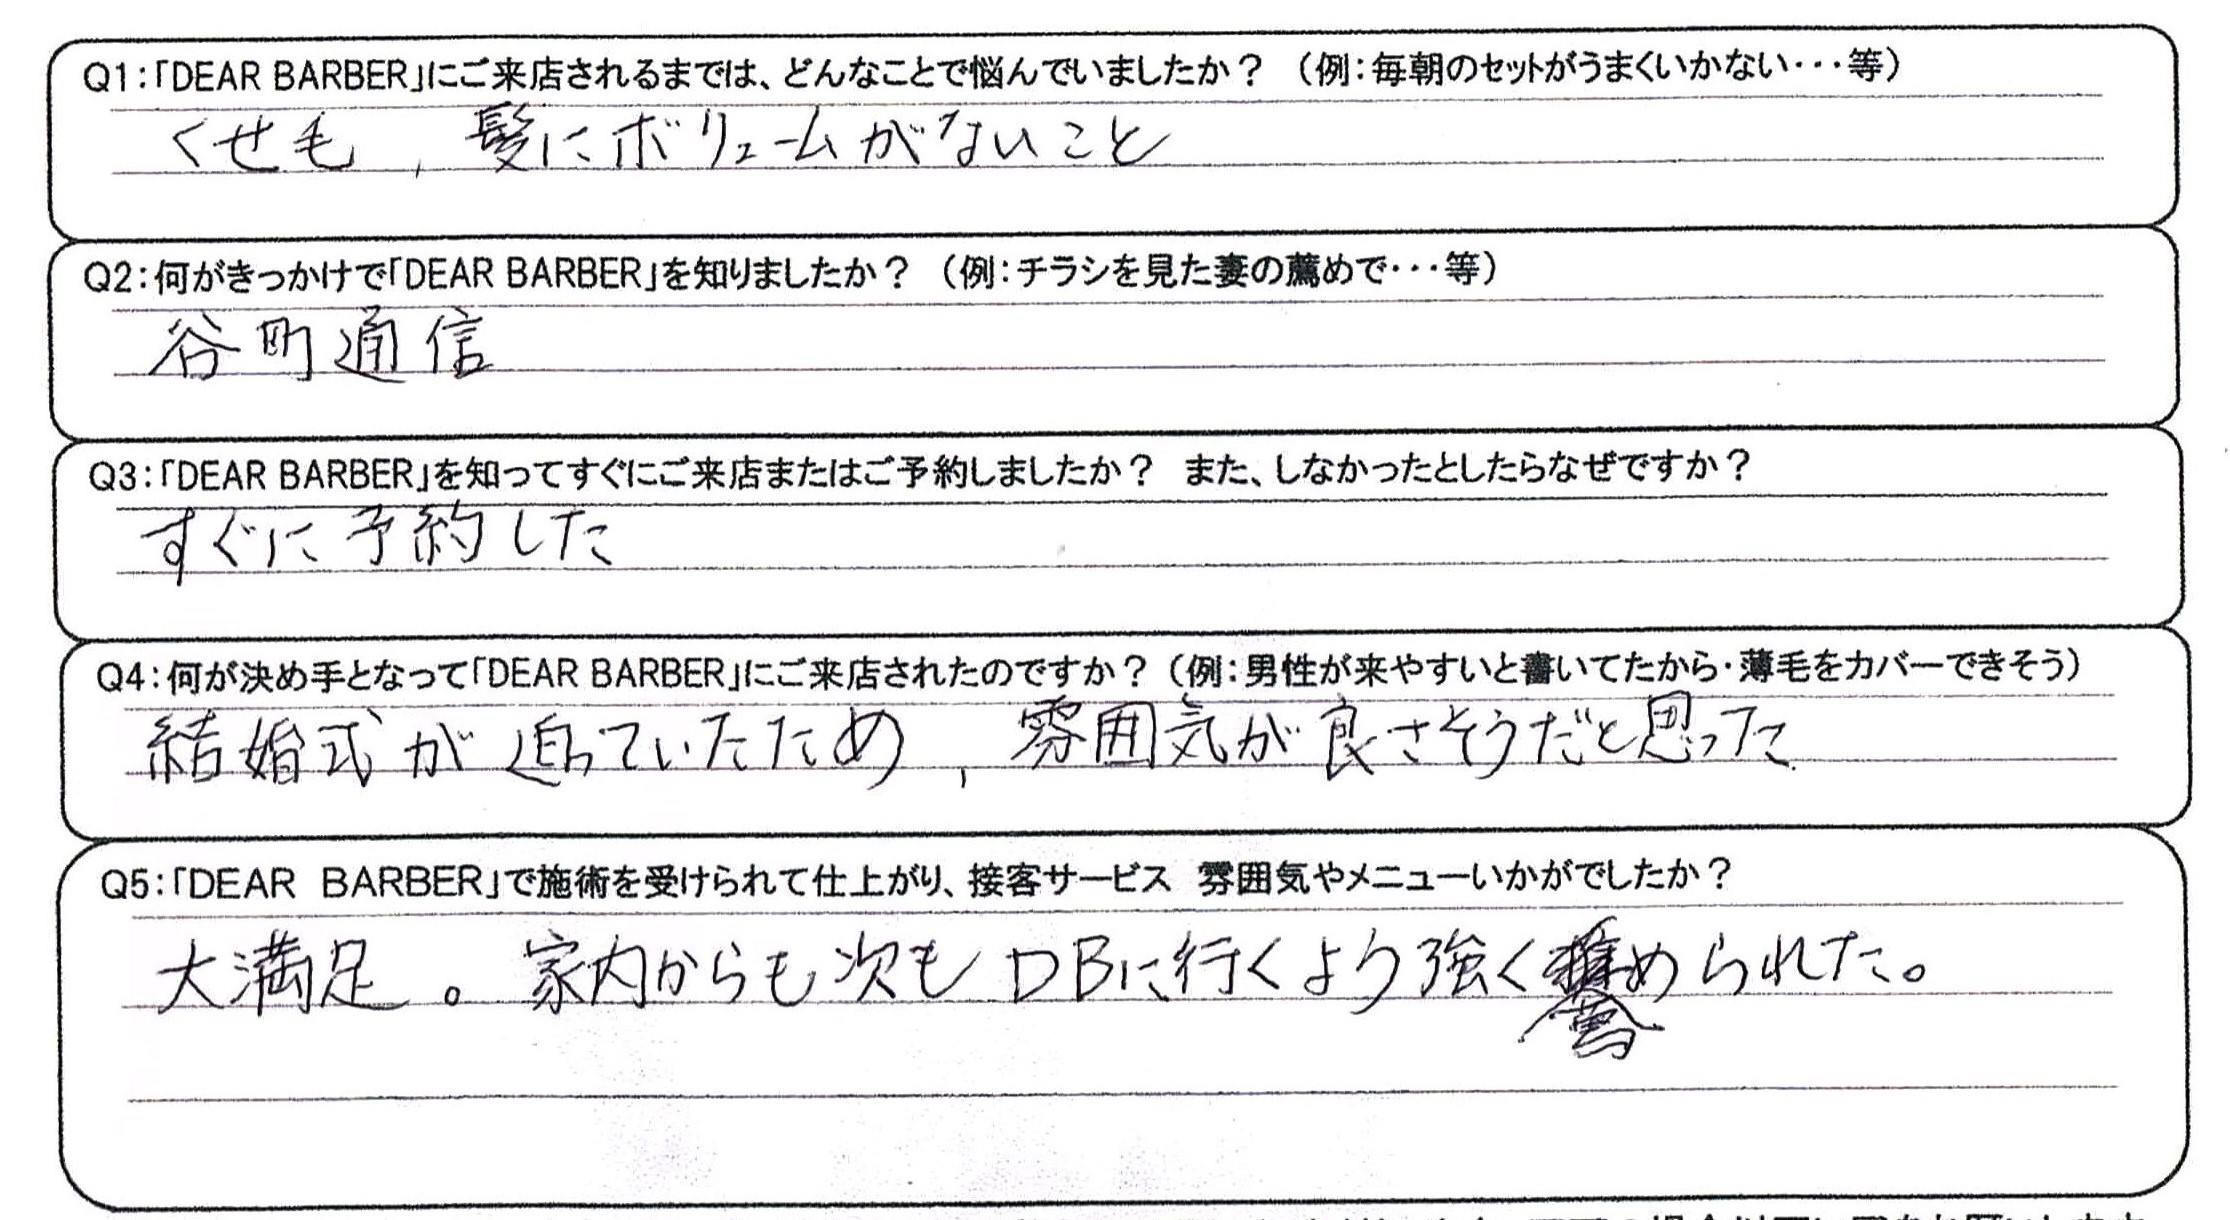 Q1:「DEAR BARBER」にご来店されるまでは、どんなことで悩んでいましたか？ （例：毎朝のセットがうまくいかない・・・等）
くせ毛, 髪にボリュームがないこと
Q2:何がきっかけで「DEAR BARBER」を知りましたか？ （例：チラシを見た妻の薦めで・・・等）
谷町通信
Q3:「DEAR BARBER」を知ってすぐにご来店またはご予約しましたか？ また、しなかったとしたらなぜですか？
すぐに予約した
Q4:何が決め手となって「DEAR BARBER」にご来店されたのですか？（例：男性が来やすいと書いてたから・薄毛をカバーできそう）
結婚式が迫っていたため, 雰囲気が良さそうだと思った
Q5:「DEAR BARBER」で施術を受けられて仕上がり、接客サービス 雰囲気やメニューいかがでしたか？
大満足。家内からも次もDBに行くよう強く薦められた。